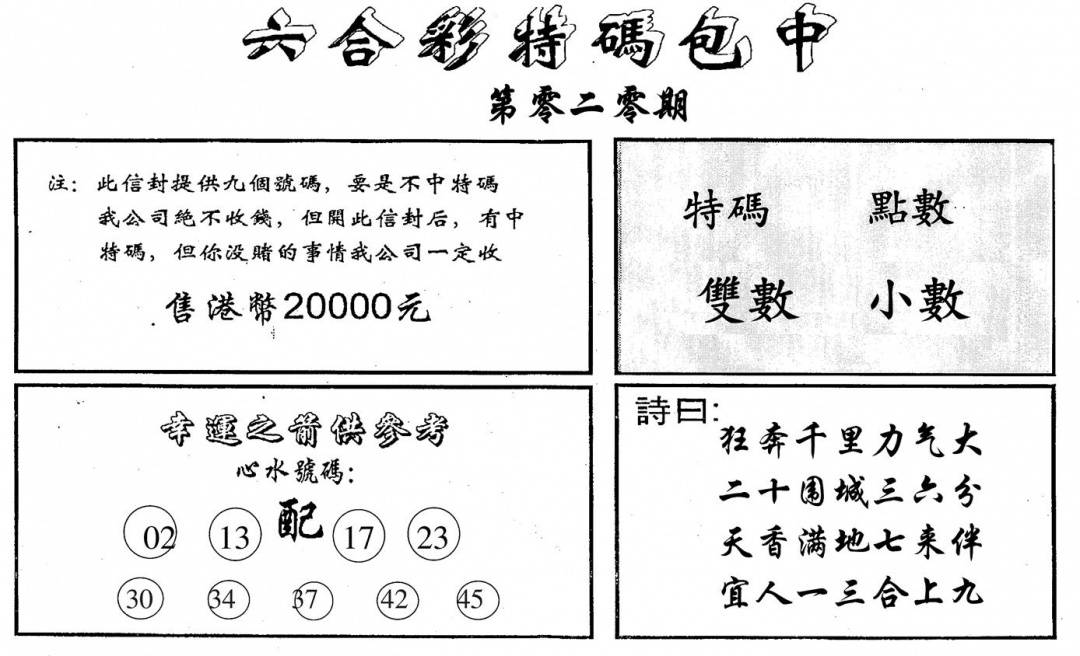 六合彩特碼包中
第零二零期
注：此信封提供九個號碼，要是不中特碼
我公司絕不收錢，但開此信封后，有中
特碼，但你没賭的事情我公司一定收
售港幣20000元
特碼 點數
雙數 小數
幸運之箭供參考
心水號碼：
02 13 配 17 23
30 34 37 42 45
詩曰：
狂奔千里力气大
二十围城三六分
天香满地七来伴
宜人一三合上九